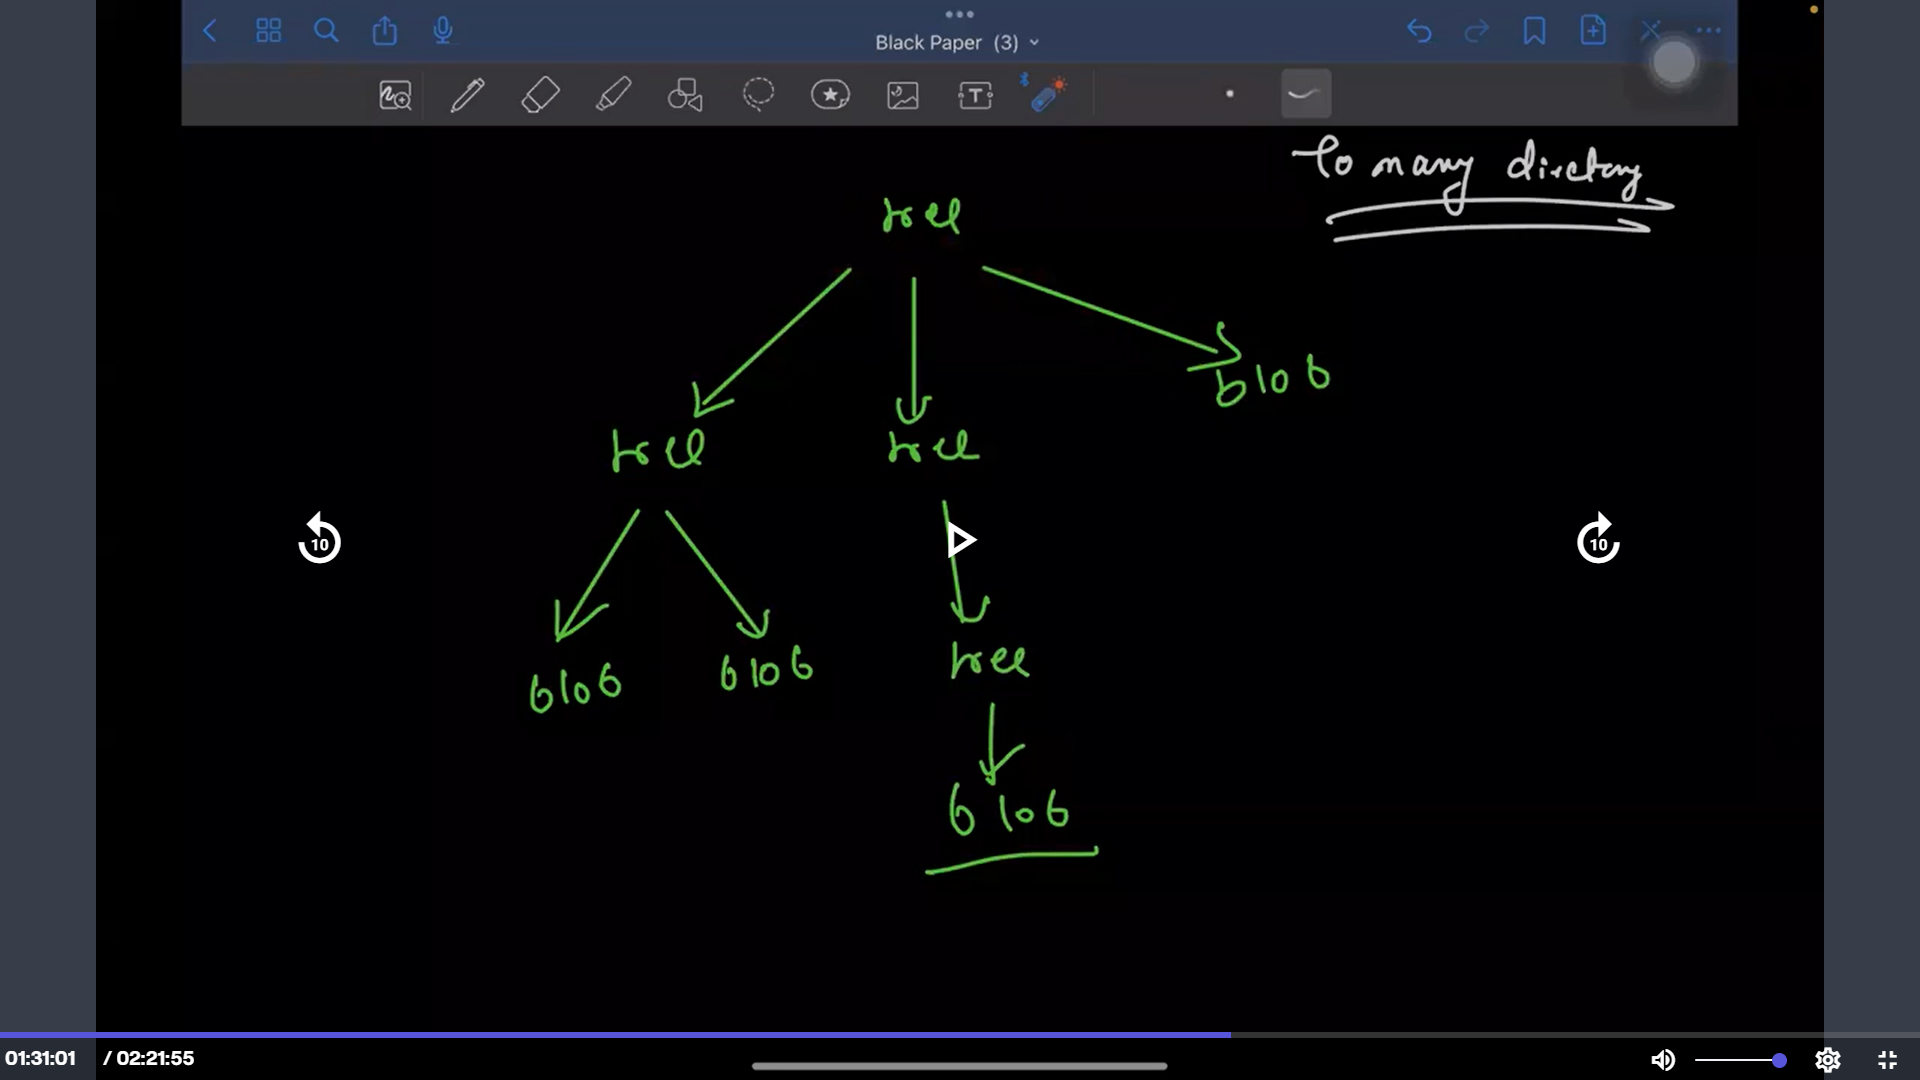 Black Paper (3)
T
To many directory
tree
blob
tree
tree
blob
blob
tree
blob
10
10
01:31:01 / 02:21:55